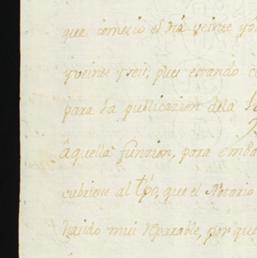 que comecio el dia veinte y
y veinte y seis, pues estando
para la publicazion dela
aquella funzion, para emba
cubriese al tpo, que el Notario
havido mui reparable, por que